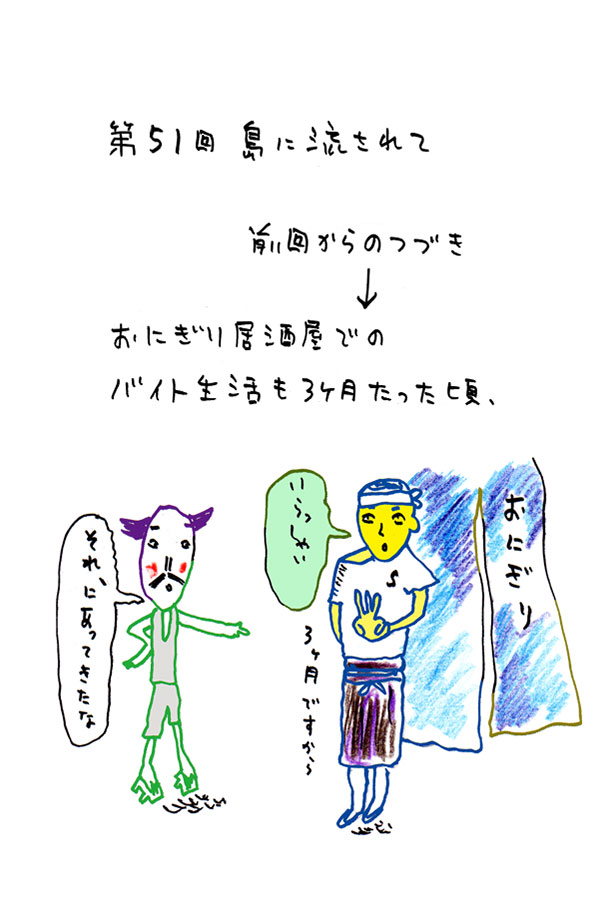 第51回 島に流されて
前回からのつづき
↓
おにぎり居酒屋での
バイト生活も3ヶ月たった頃、
おにぎり
いらっしゃい
3ヶ月ですから
それ、にあってきたな
S